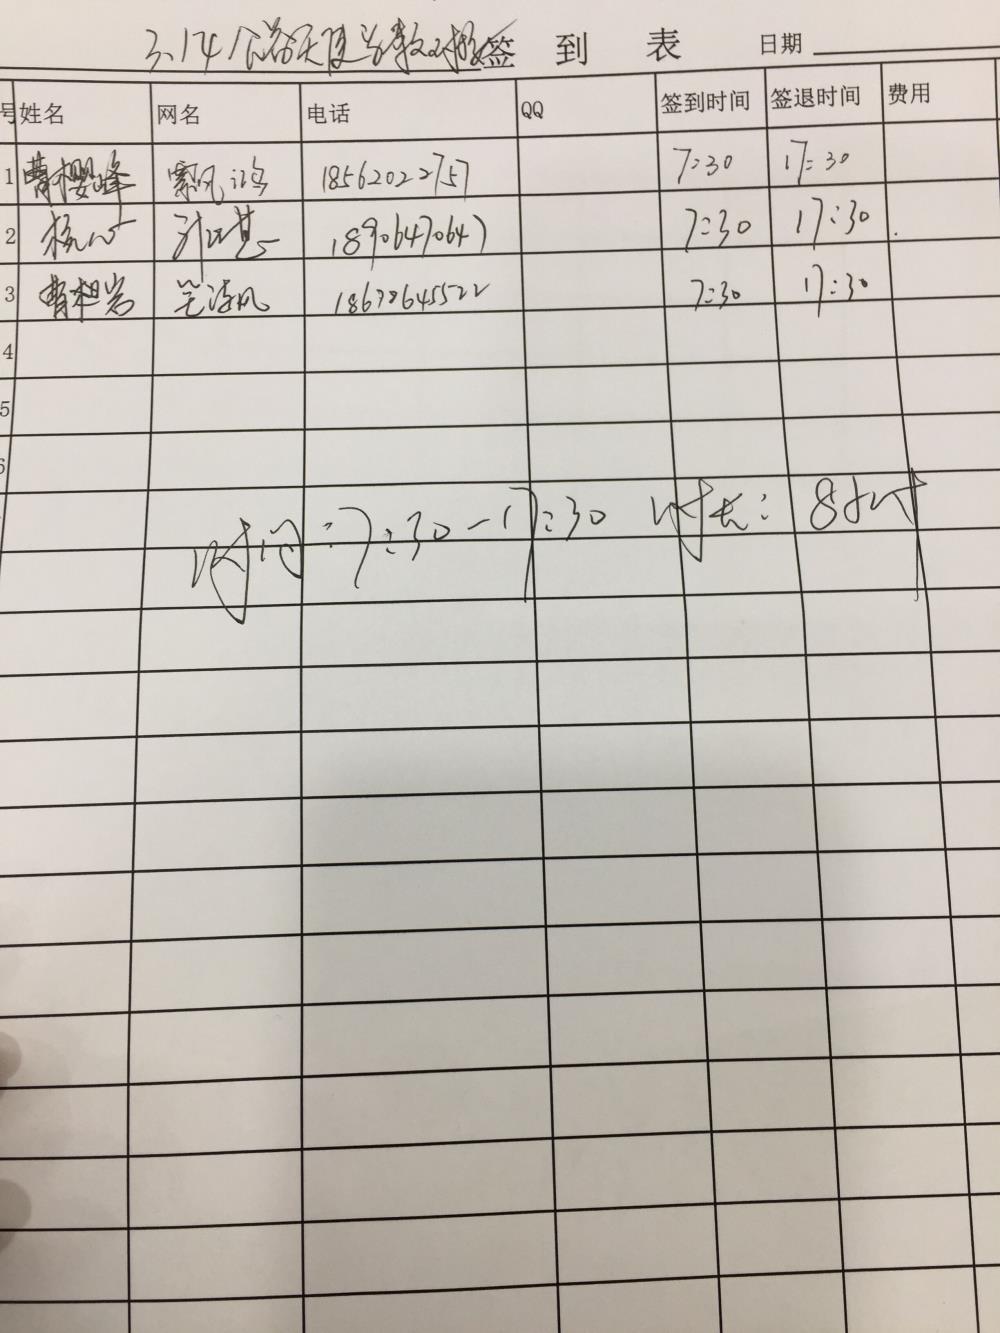 3.14 签到表 日期
号 姓名 网名 电话 QQ 签到时间 签退时间 费用
1 曹樱峰 18562022757 7:30 17:30
2 18906470647 7:30 17:30
3 笑清风 18678645522 7:30 17:30
4
5
6
时间:7:30-17:30 时长:8小时